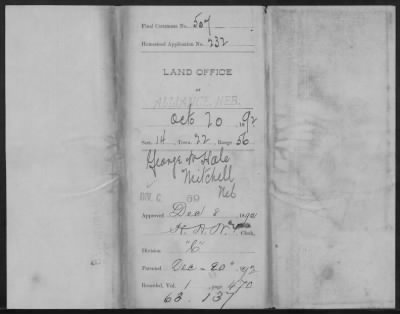 Final Certificate No. 507
Homestead Application No. 232
LAND OFFICE
at
ALLIANCE, NEB.
Oct 20, 1892
Sec. 14, Town. 22, Range 56
George W Hale
Mitchell
Neb
DIV. C 59
Approved Dec 8 1892
Clerk,
Division "C"
Patented Dec - 20" 1892
Recorded, Vol. 1, page 470
63. 137